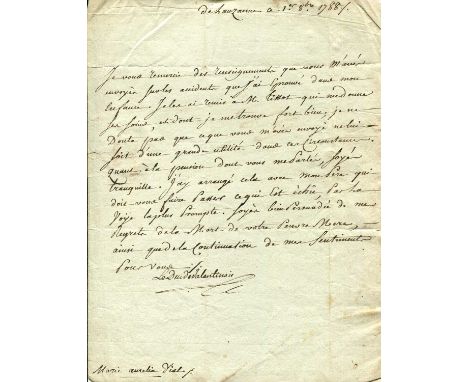 de Lauzanne a 1er 8bre 1788/.
je vous remercie des renseignements que vous m'avés
envoyés sur les accidents que j'ai Eprouvé dans mon
enfance. je les ai remis a M. Tissot qui me donne
ses soins et dont je me trouve fort bien, je ne
Doute pas que ce que vous m'avés envoyé ne lui
soit d'une grande utilité dans ces circonstances.
quant à la pension dont vous me parlés, soyés
tranquille. j'ay arrangé cela avec mon Père qui
doit vous faire Passer ce qui Est échu Par la
Voye la plus Prompte. Soyés bien Persuadée de mes
Regrets de la Mort de votre Pauvre Mere,
ainsi que de la Continuation de mes Sentiments
Pour Vous /.
Le Duc de Valentinois
Marie aurelia Vial /.